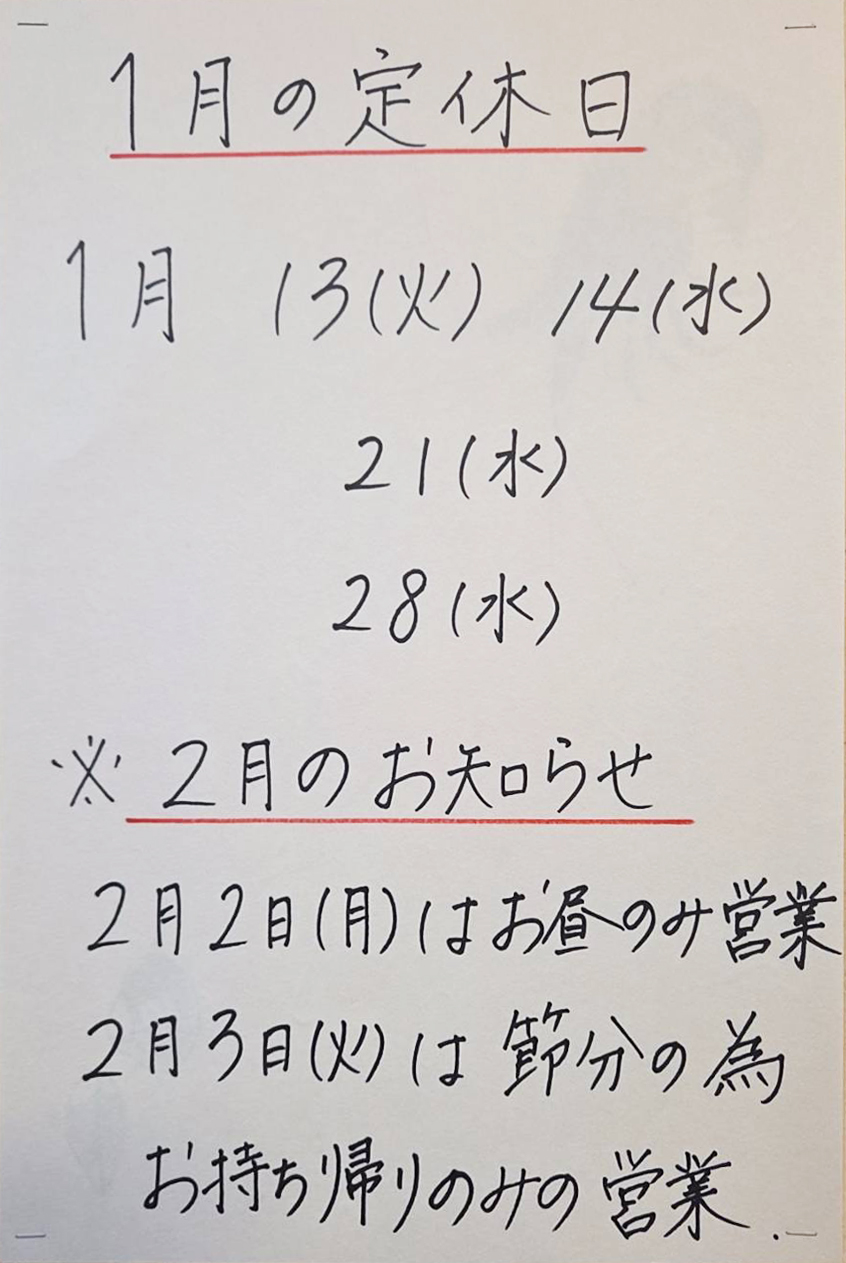 1月の定休日
1月 13(火) 14(水)
21(水)
28(水)
※2月のお知らせ
2月2日(月)はお昼のみ営業
2月3日(火)は節分の為
お持ち帰りのみの営業.